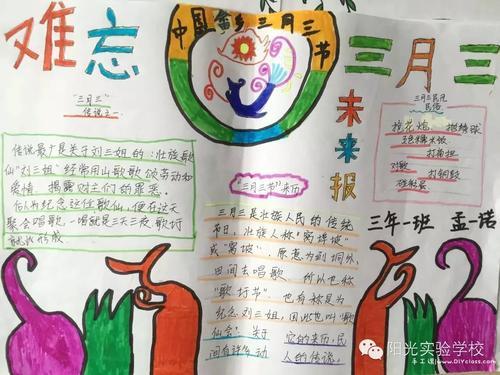 难忘
中国壮乡三月三节
三月三
未来报
"三月三"
传说之一
传说最广是关于刘三姐的:壮族歌
仙"刘三姐"经常用山歌歌颂劳动和
爱情,揭露财主们的罪恶。
后人为纪念这位歌仙,便在这天
聚会唱歌,一唱就是三天三夜,歌圩
就此形成
"三月三节"来历
三月三是壮族人民的传统
节日,壮族人称"窝埠坡"
或"窝坡",原意为到垌外、
田间去唱歌,所以也称
"歌圩节"。也有称是为
纪念刘三姐,因此也叫"歌
仙会"。关于它的来历,民
间有许多动人的传说。
三月三民风
民俗
抢花炮、抛绣球
五色糯米饭
打扁担
对歌 打铜鼓
碰彩蛋
三年一班 孟一诺
阳光实验学校
手工课www.DIYclass.com